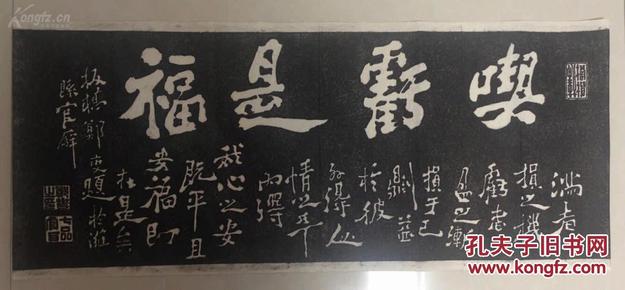 喫虧是福
滿者
損之機
虧者
盈之漸
損于己
則益
於彼
外得人
情之平
内得
我心之安
既平且
安福即
在是矣
板橋鄭燮題於濰
縣官廨
七品
官耳
孔夫子旧书网
www.kongfz.com
Kongfz.com